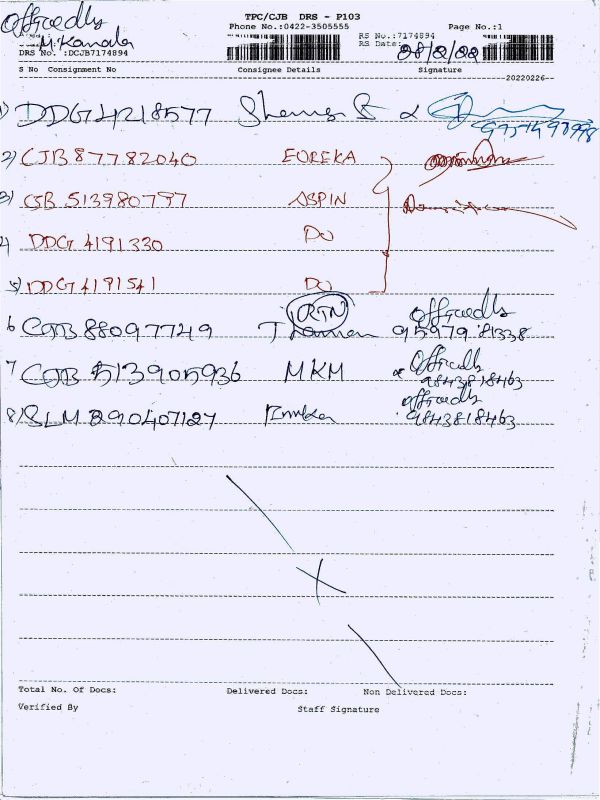 TPC/CJB DRS - P103
Phone No.:0422-3505555 Page No.:1
M. Kamala
RS No.:7174894
RS Date: 28/2/22
DRS No. :DCJB7174894
S No Consignment No Consignee Details Signature
20220226
1) DDG4218577
2) CJB 87782040 EUREKA
3) CJB 513980797 ASPIN
4 DDG 4191330 DO
5) DDG 4191541 DO
RTN
6 CJB 88097749 95979 81338
7 CJB 513905936 MKM
9843818463
8) SLM 290407127
9843818463
Total No. Of Docs: Delivered Docs: Non Delivered Docs:
Verified By Staff Signature